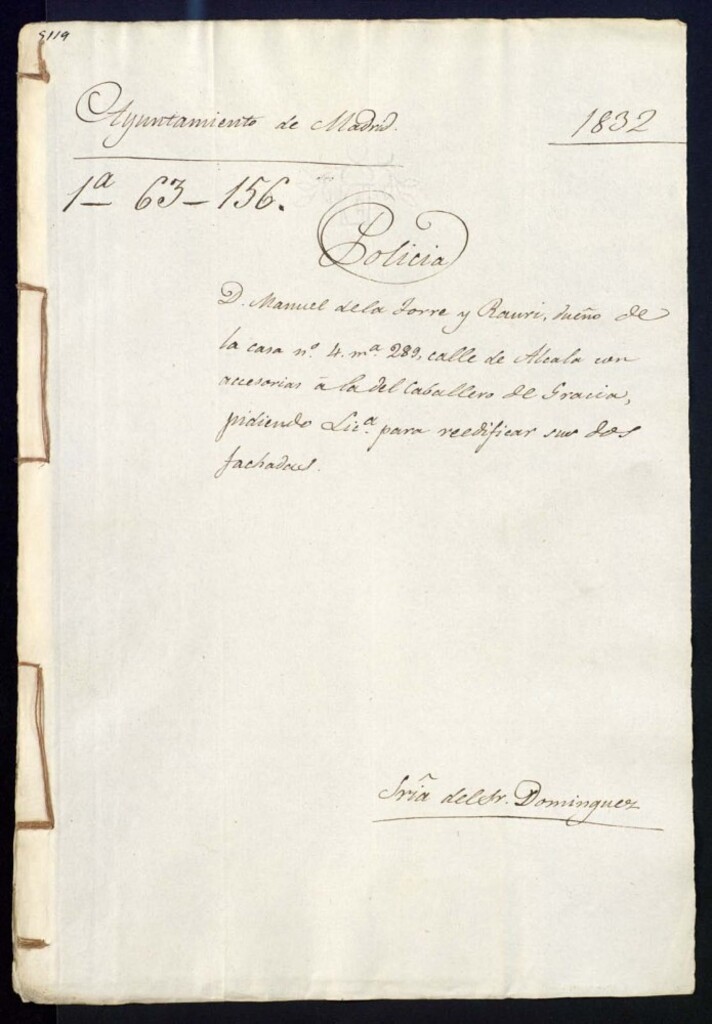 5119
Ayuntamiento de Madrid.
1832
1ª 63-156.
Policia
D. Manuel dela Torre y Rauri, dueño de
la casa nº 4. mª 289, calle de Alcala con
accesorias á la del Caballero de Gracia,
pidiendo Licª para reedificar sus dos
fachadas.
Sria del Sr. Dominguez